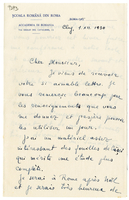 ȘCOALA ROMÂNĂ DIN ROMA
Cluj, 1.XII.1930
Cher Monsieur,
Je viens de recevoir
votre si aimable lettre. Je
vous remercie beaucoup pour
les renseignements que vous
me donnez et
les utiliser un jour. J'
ai un matériel assez
intéressant des fouilles de
qui mérite une étude plus
complète.
Je serai à Rome après Noël
et je serais très heureux de